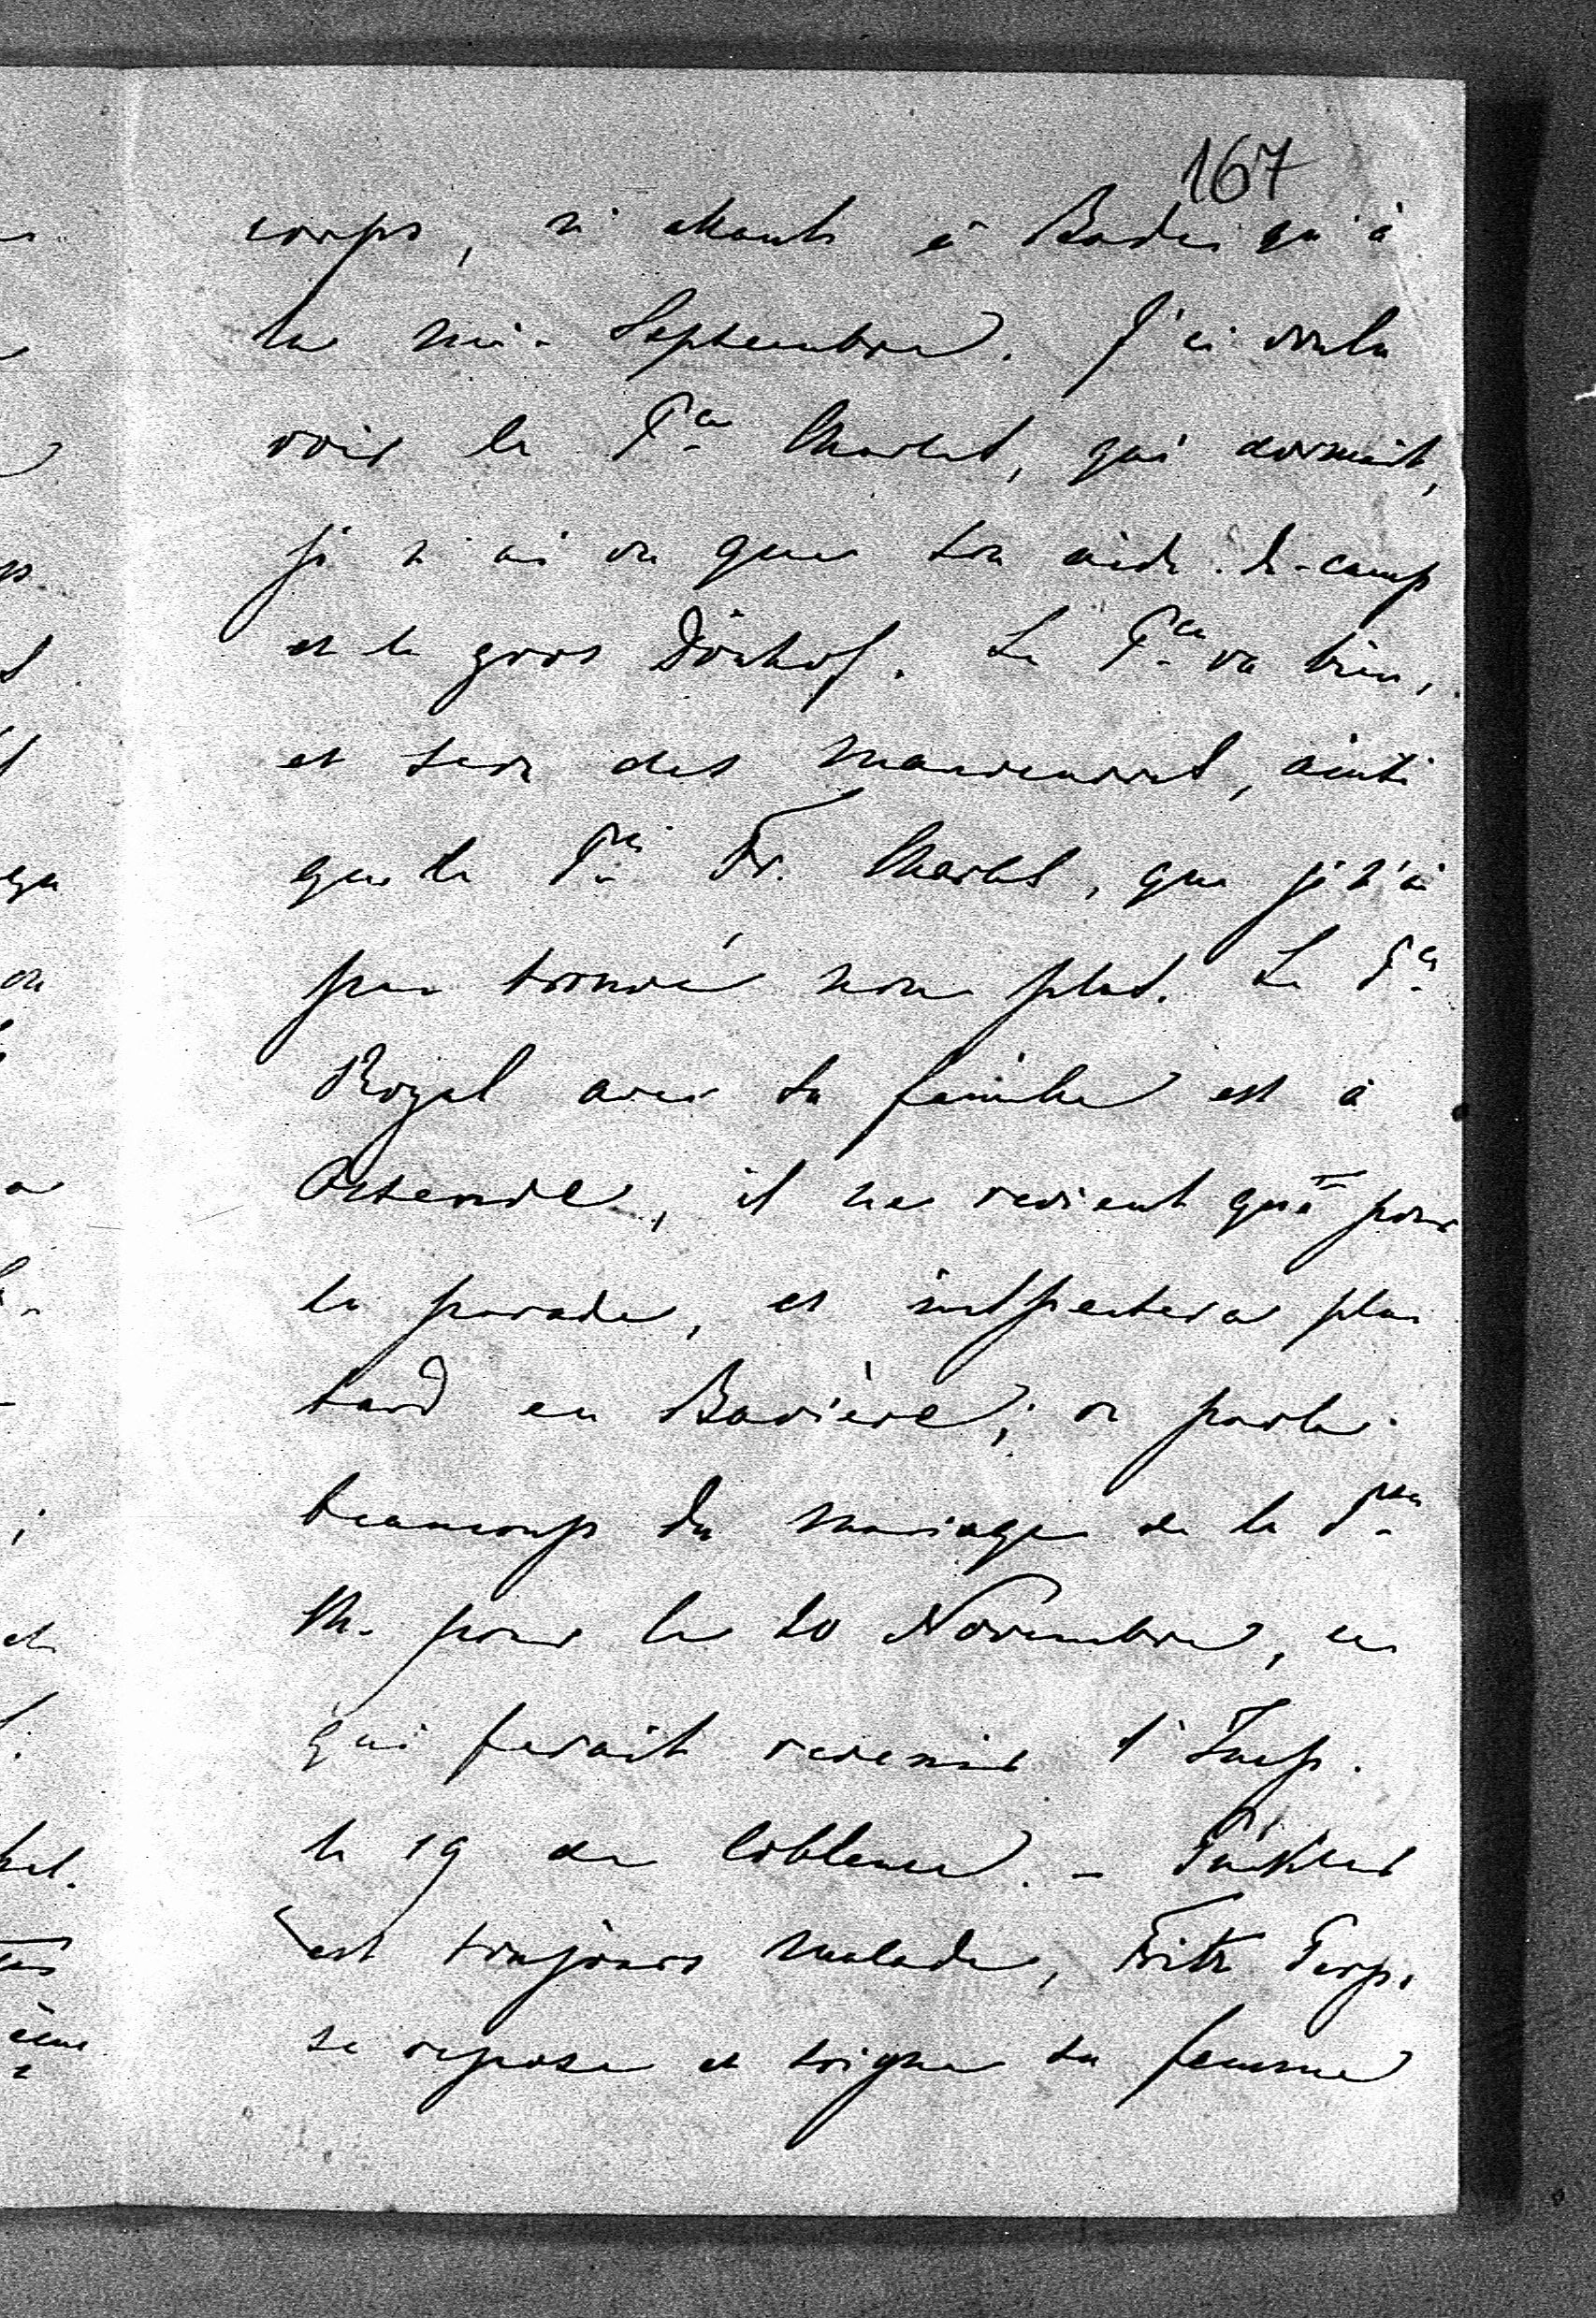 167
corps, n' étant à Bade qu'à
la mi-Septembre. J'ai voulu
voir le Pce Charles, qui dormait,
je n'ai vu que son aide-de-camp
et le gros Dönhof. Le Pce va bien,
et sera des manoeuvres, ainsi
que le Pce Fr. Charles, que je n'ai
pas trouvé non plus. Le Pce
Royal avec sa famille est à
Ostende, il ne revient que pour
la parade, et inspectera plus
tard en Bavière; on parle
beaucoup du mariage de la Psse
M. pour le 20 Novembre, ce
qui ferait revenir l'Imp.
le 19 de Coblence. – Pückler
est toujours malade, Fritz Perp.
se repose et soigne sa femme